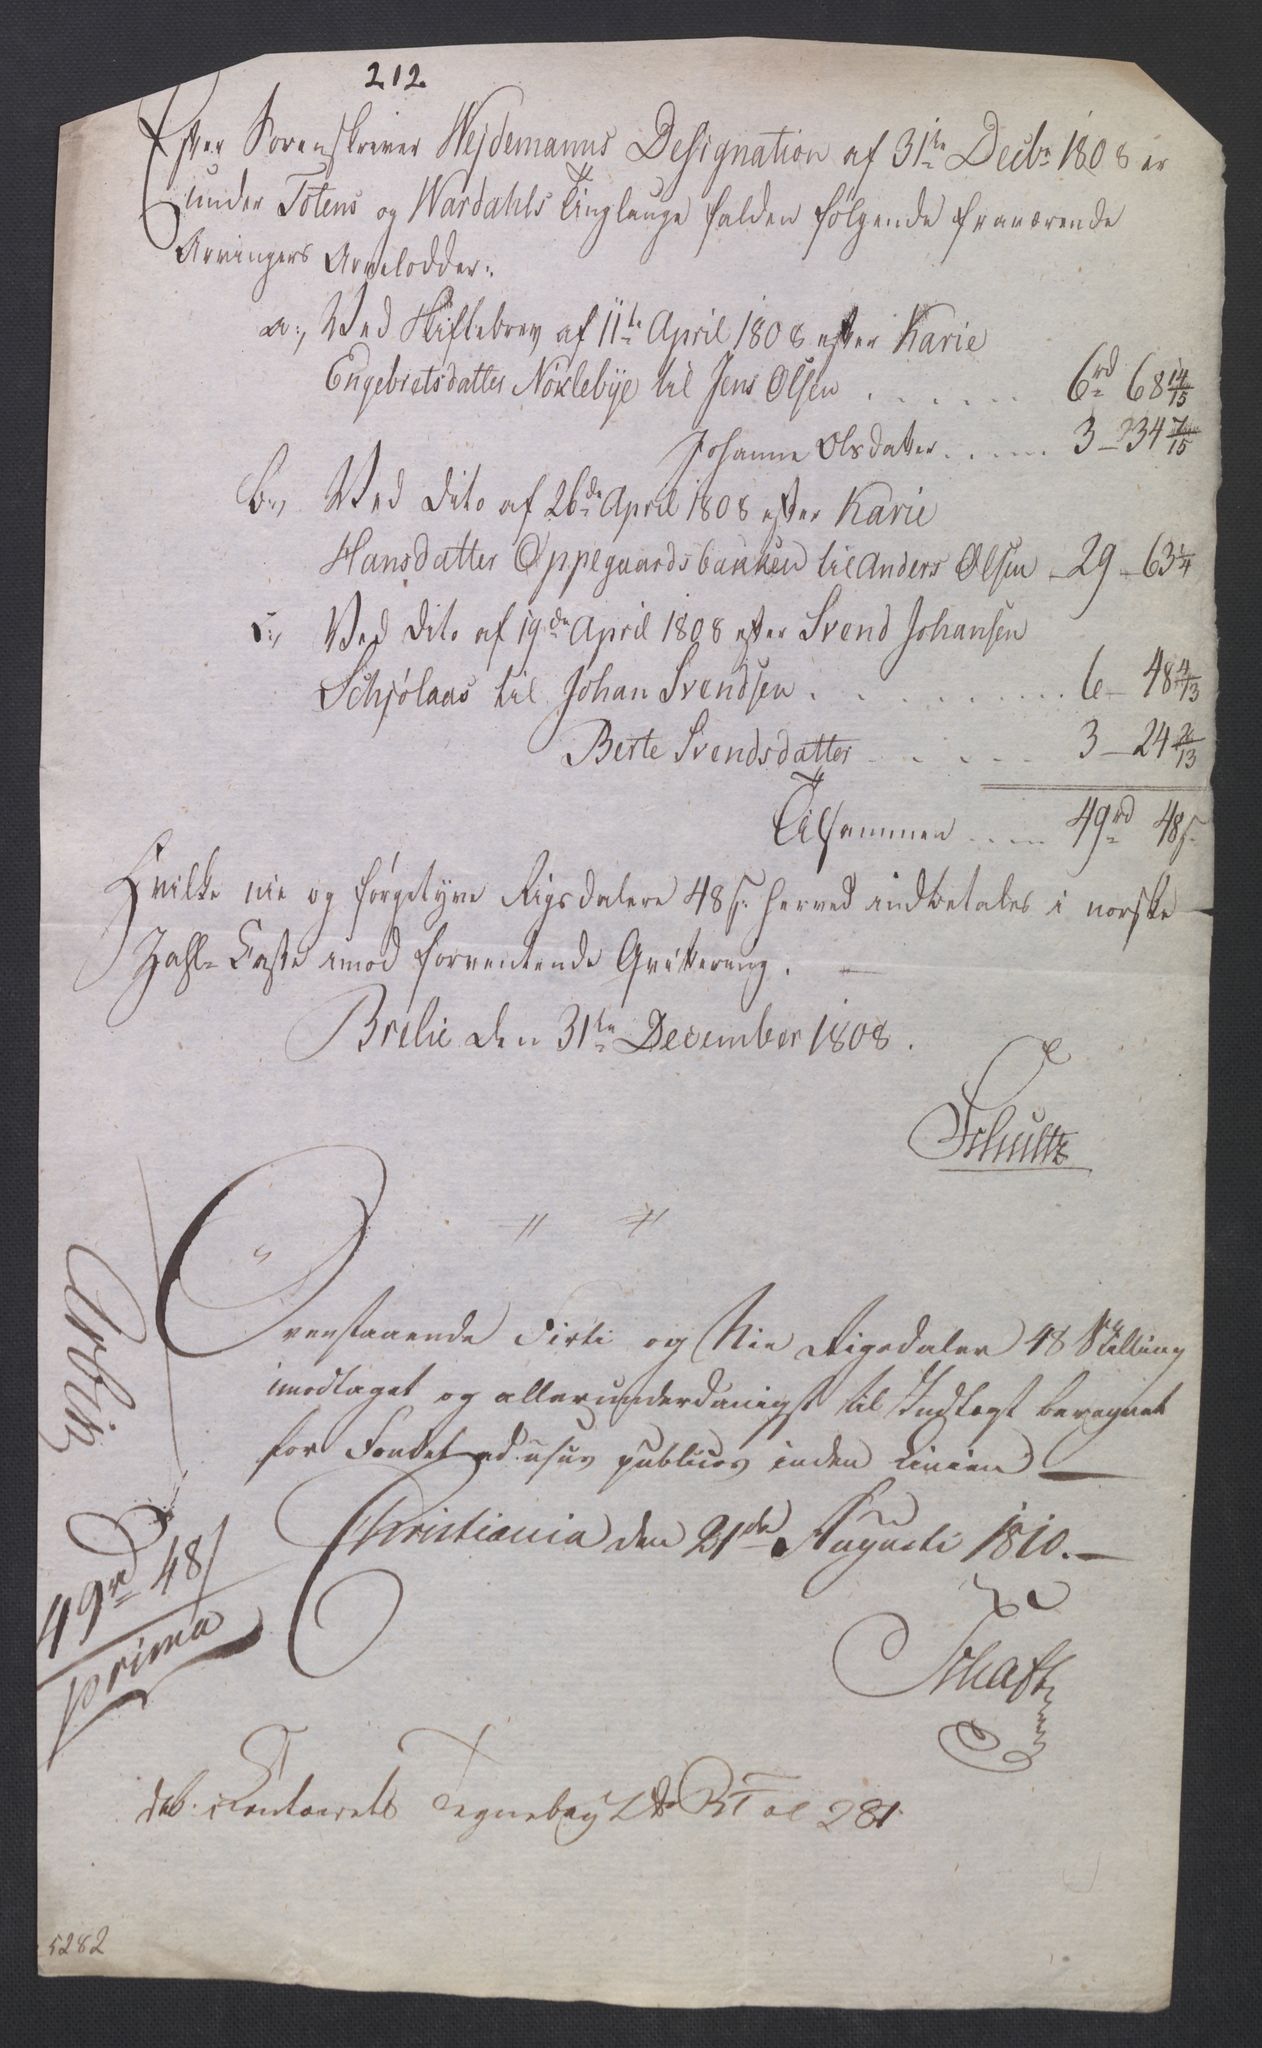 212.
Efter Sorenskriver Wejdemanns Designation af 31te Decbr 1808 er
under Totens og Wardahls Tinglauge falden følgende fraværende
Arvingers Arvelodder:
a:, Ved Skiftebrev af 11te April 1808 efter Karie
Engebretsdatter Nøxlebye til Jens Olsen . . . . . . 6rd 68 14/15
Johanne Olsdatter . . . . . 3 – 34 7/15
b:, Ved Dito af 26de April 1808 efter Karie
Hansdatter Oppegaardsbakken til Anders Olsen – 29 – 63 1/4
c:, Ved Dito af 19de April 1808 efter Svend Johansen
Schjølaas til Johan Svendsen . . . . . . . . 6 – 48 4/13
Berte Svendsdatter . . . . . 3 – 24 2/13
Tilsammen . . . . 49rd 48s.
Hvilke nie og førgetyve Rigsdalere 48 s. herved indbetales i norske
Zahl-Casse imod forventende Qvittering. –
Brelie den 31te December 1808.
Schultz
Ovenstaaende Firti og Nie Rigsdaler 48 Skilling
imodtaget og allerunderdanigst til Indtægt beregnet
for Fondet ad usus publicos inden Linien –
Christiania den 21de Augusti 1810. –
Schaft
49rd 48s
prima
deb: Contoirets Regnebog Fol 281.
5282